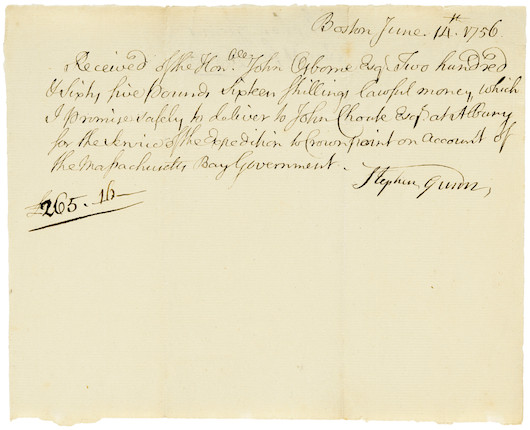 Boston June 14th 1756
Received of the Honble John Osborne Esqr Two hundred
& Sixty five Pounds Sixteen Shillings lawful money, which
I promise safely to deliver to John Choate Esqr at Albany
for the Service of the Expedition to Crown point on Account of
the Massachusetts Bay Government.
Stephen
£265.16